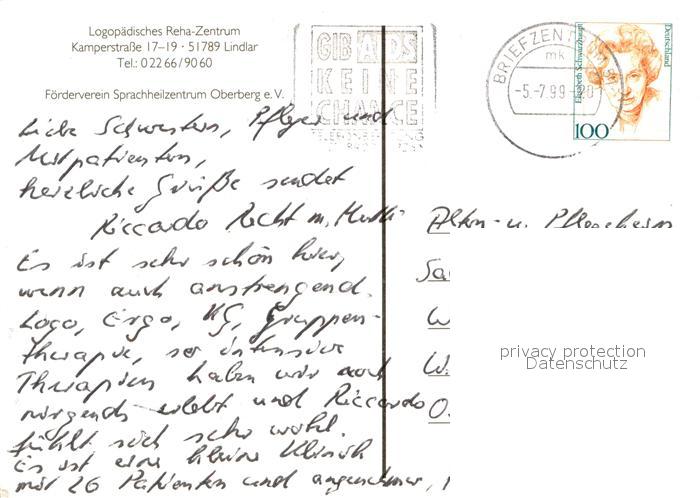 Logopädisches Reha-Zentrum
Kamperstraße 17–19 · 51789 Lindlar
Tel.: 0 22 66 / 90 60
Förderverein Sprachheilzentrum Oberberg e.V.
GIB AIDS
KEINE
CHANCE
BRIEFZENTRUM
mk
-5.-7.99-20
Elisabeth Schwarzhaupt
Deutschland
100
Liebe Schwestern, Pfleger und
Mitpatienten,
herzliche Grüße sendet
Riccardo Recht m. Mutti
Es ist sehr schön hier,
wenn auch anstrengend.
Logo, Ergo, KG, Gruppen-
therapie, so intensive
Therapien haben wir noch
nirgends erlebt und Riccardo
fühlt sich sehr wohl.
Es ist eine kleine Klinik
mit 26 Patienten und angenehmer,
Alten- u. Pflegeheim
Sa
W
W.
O.
privacy protection
Datenschutz